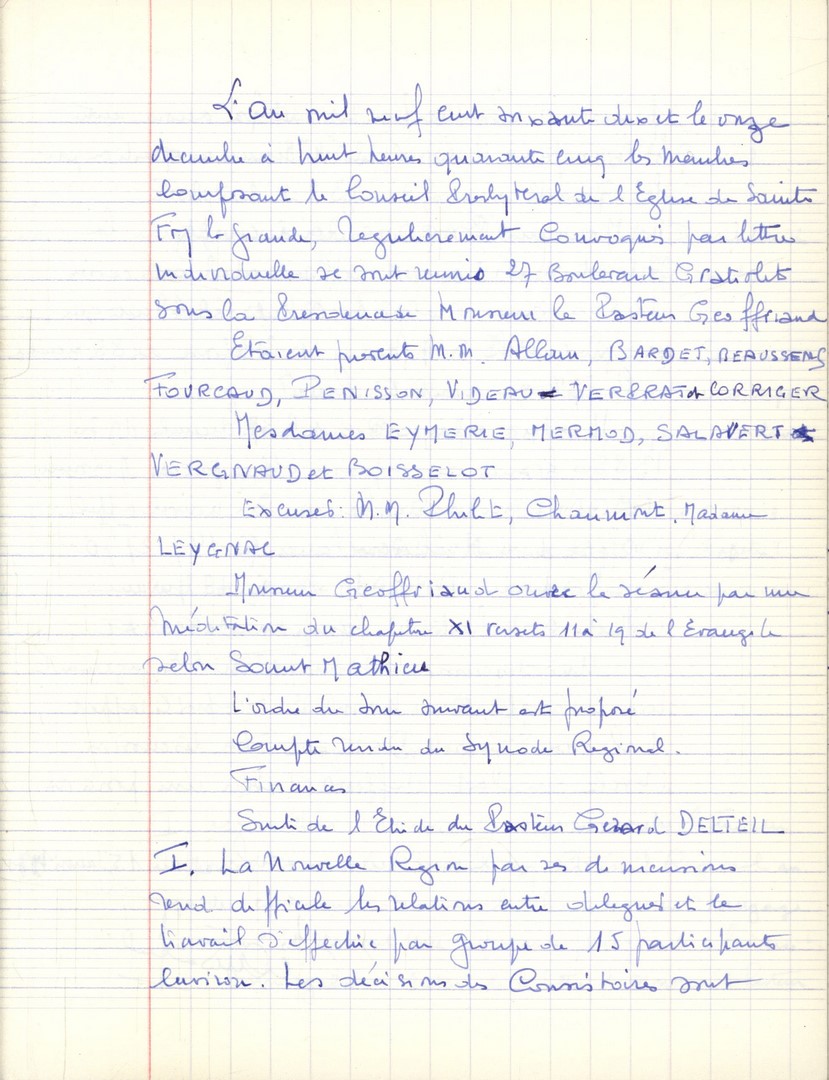 L'an mil neuf cent soixante dix et le onze
decembre à huit heures quarante cinq les membres
composant le Conseil Presbyteral de l'Eglise de Sainte
Foy la Grande, regulierement convoqués par lettre
individuelle se sont reunis 27 Boulevard Gratiolet
sous la Presidence de Monsieur le Pasteur Geoffriaud
Etaient presents M.M. Allain, BARDET, BEAUSSENS
FOURCAUD, PENISSON, VIDEAU VERRAT et CORRIGER
Mesdames EYMERIE, MERMOD, SALAVERT
VERGNAUD et BOISSELOT
Excusés: M.M. Chaumont, Madame
LEYGNAC
Monsieur Geoffriaud ouvre la séance par une
méditation du chapitre XI versets 11 à 19 de l'Evangile
selon Saint Mathieu
L'ordre du jour suivant est proposé
Compte rendu du Synode Regional.
Finances
Suite de l'Etude du Pasteur Gerard DELTEIL
I. La Nouvelle Region par ses dimensions
rend difficile les relations entre delegués et le
travail s'effectue par groupe de 15 participants
environ. Les décisions des Consistoires sont